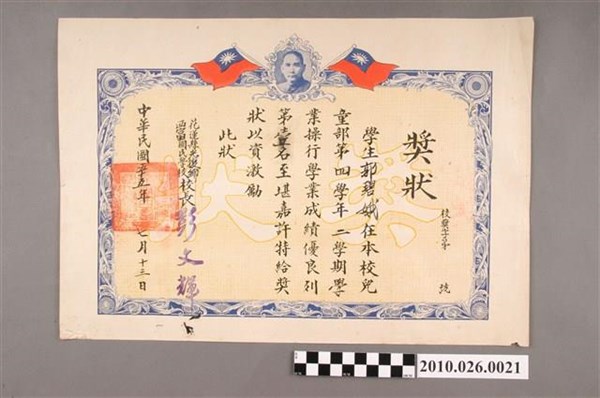 獎狀
校獎字第 號
學生郭碧娥在本校兒
童部第四學年二學期學
業操行學業成績優良列
第壹名至堪嘉許特給獎
狀以資激勵
此狀
花蓮縣
國民學校校長彭文輝
中華民國卅五年七月十三日
獎狀
2010.026.0021